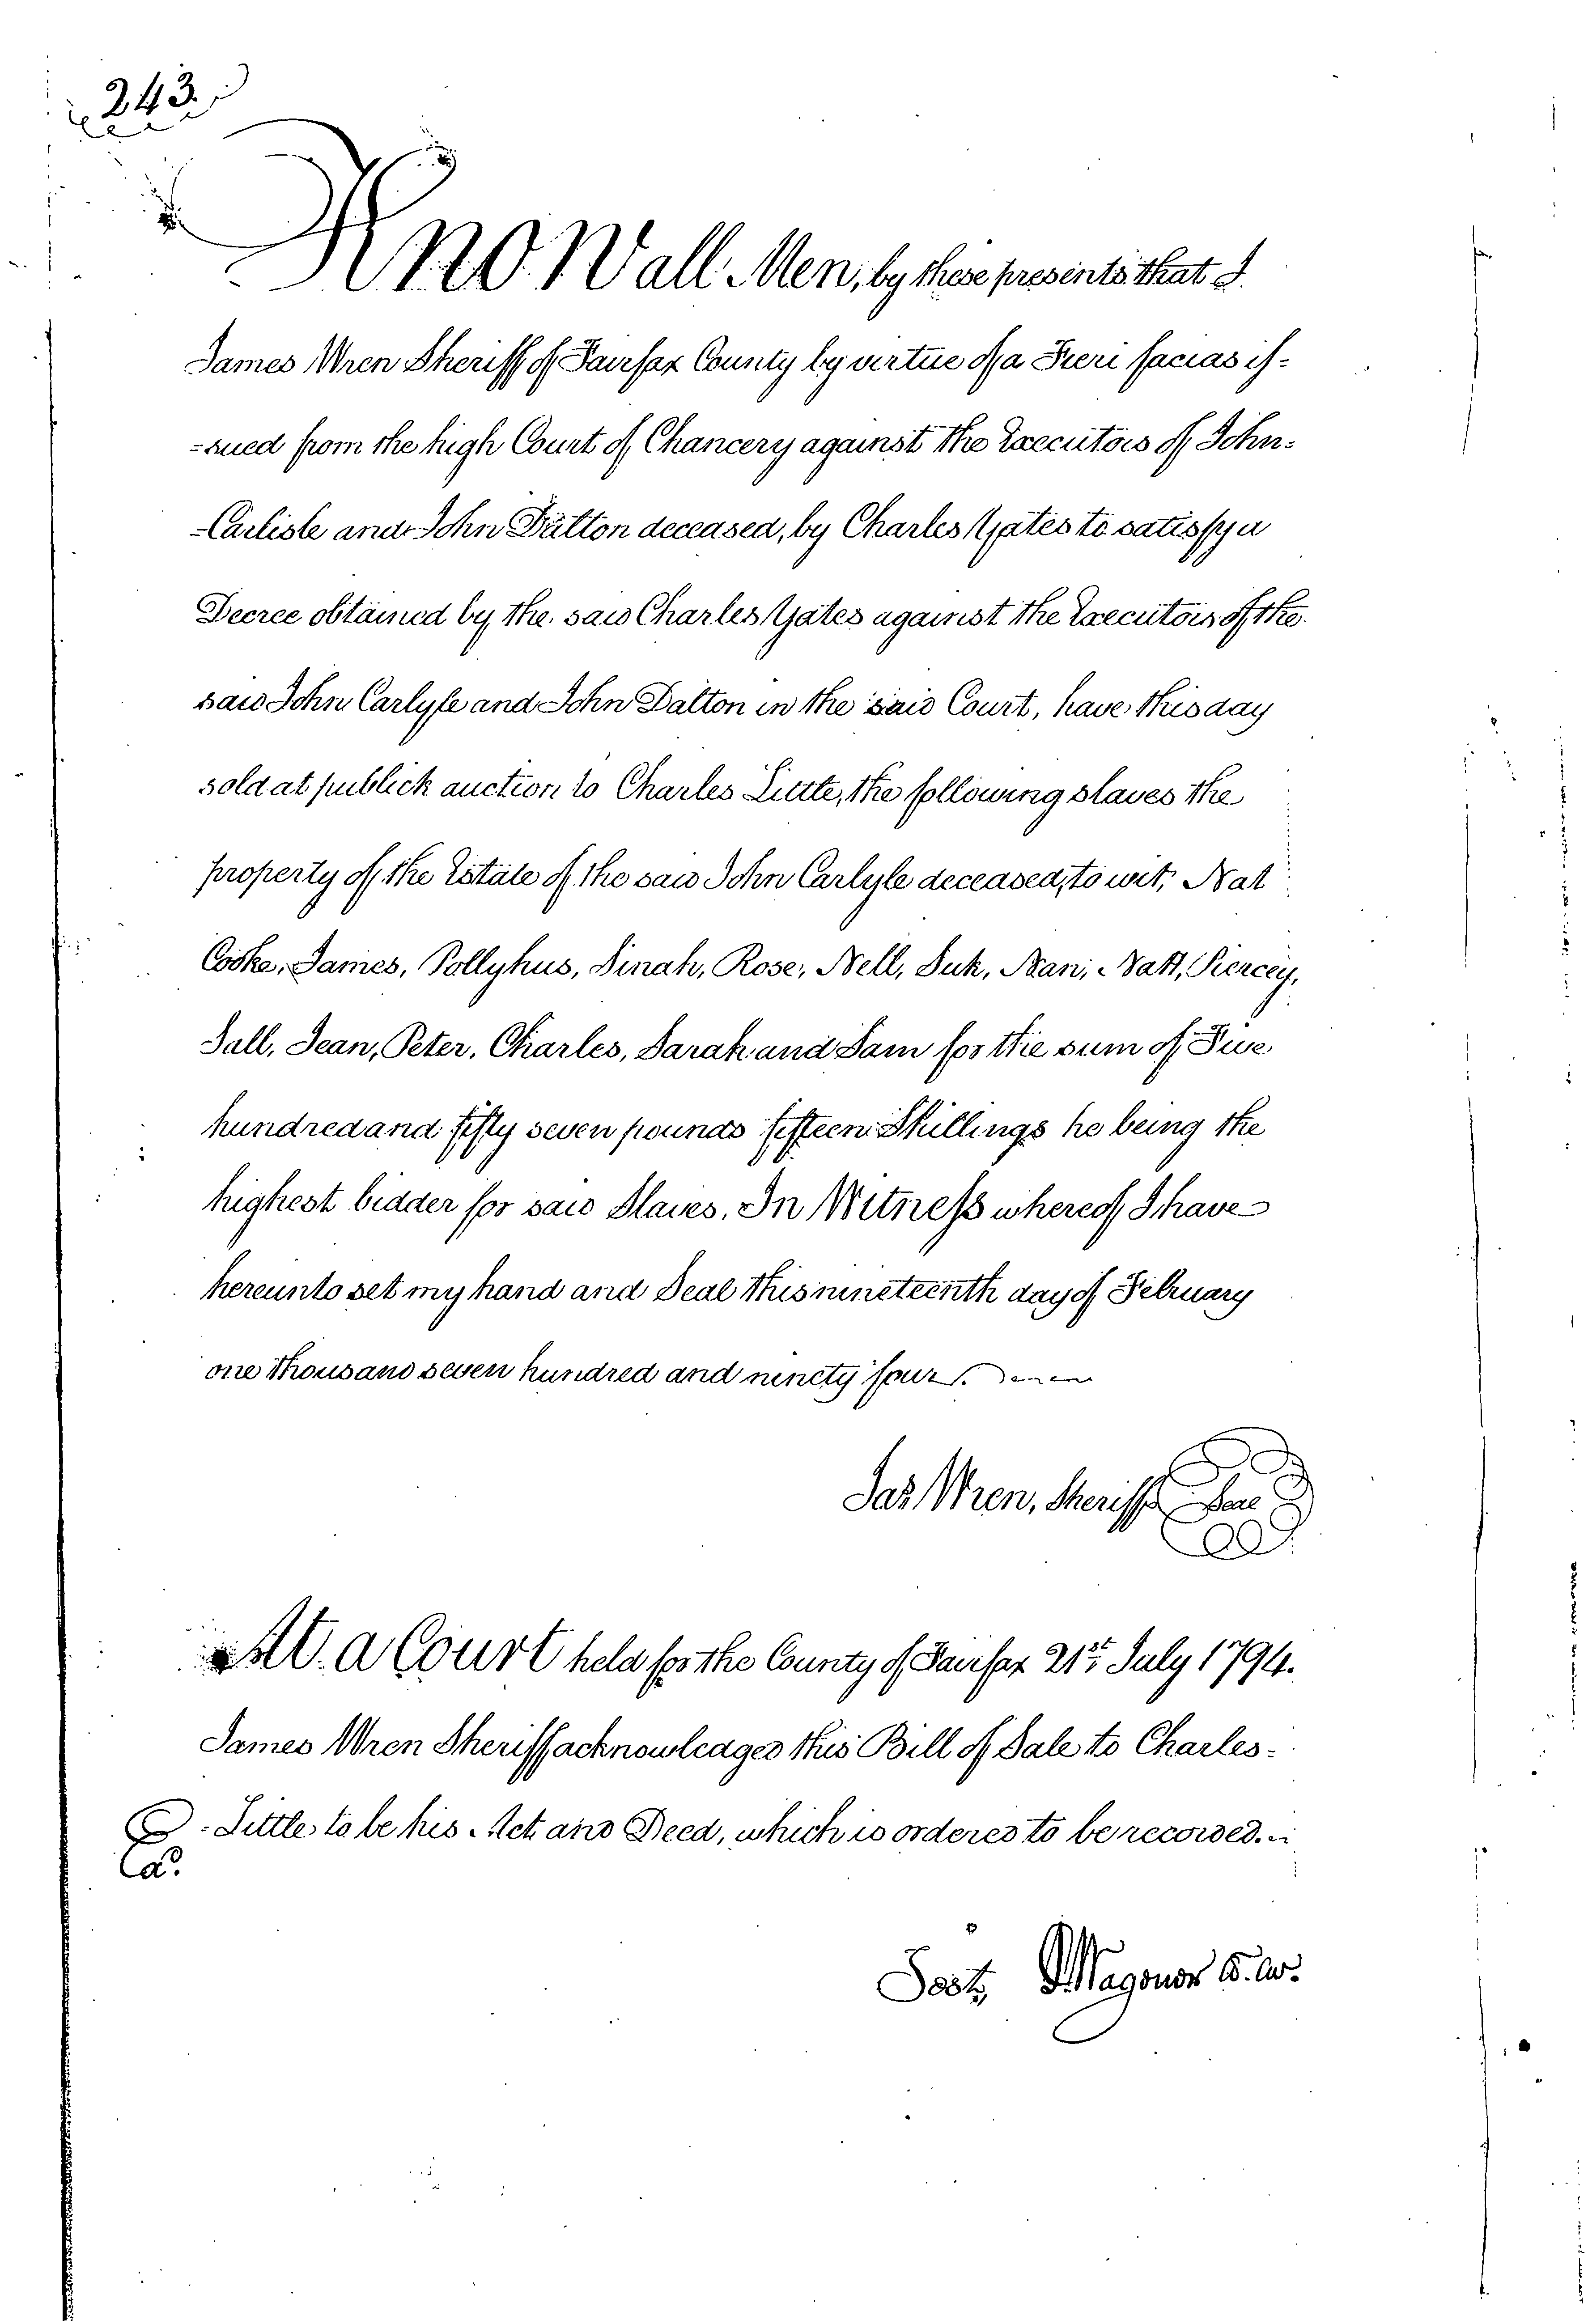 243.
Know all Men, by these presents that I
James Wren Sheriff of Fairfax County by virtue of a Fieri facias is-
-sued from the high Court of Chancery against the Executors of John-
-Carlisle and John Dalton deceased, by Charles Yates to satisfy a
Decree obtained by the said Charles Yates against the Executors of the
said John Carlyle and John Dalton in the said Court, have this day
sold at publick auction to Charles Little, the following slaves the
property of the Estate of the said John Carlyle deceased, to wit, Nat
Cooke, James, Pollyhus, Dinah, Rose, Nell, Suk, Nan, Natt, Piercey,
Sall, Jean, Peter, Charles, Sarah and Sam for the sum of Five
hundred and fifty seven pounds fifteen Shillings he being the
highest bidder for said Slaves. In Witness whereof I have
hereunto set my hand and Seal this nineteenth day of February
one thousand seven hundred and ninety four.
Jas Wren, Sheriff Seal
At a Court held for the County of Fairfax 21st July 1794.
James Wren Sheriff acknowledges this Bill of Sale to Charles-
Little to be his Act and Deed, which is ordered to be recorded.
Teste P. Wagener Cl. Cur.